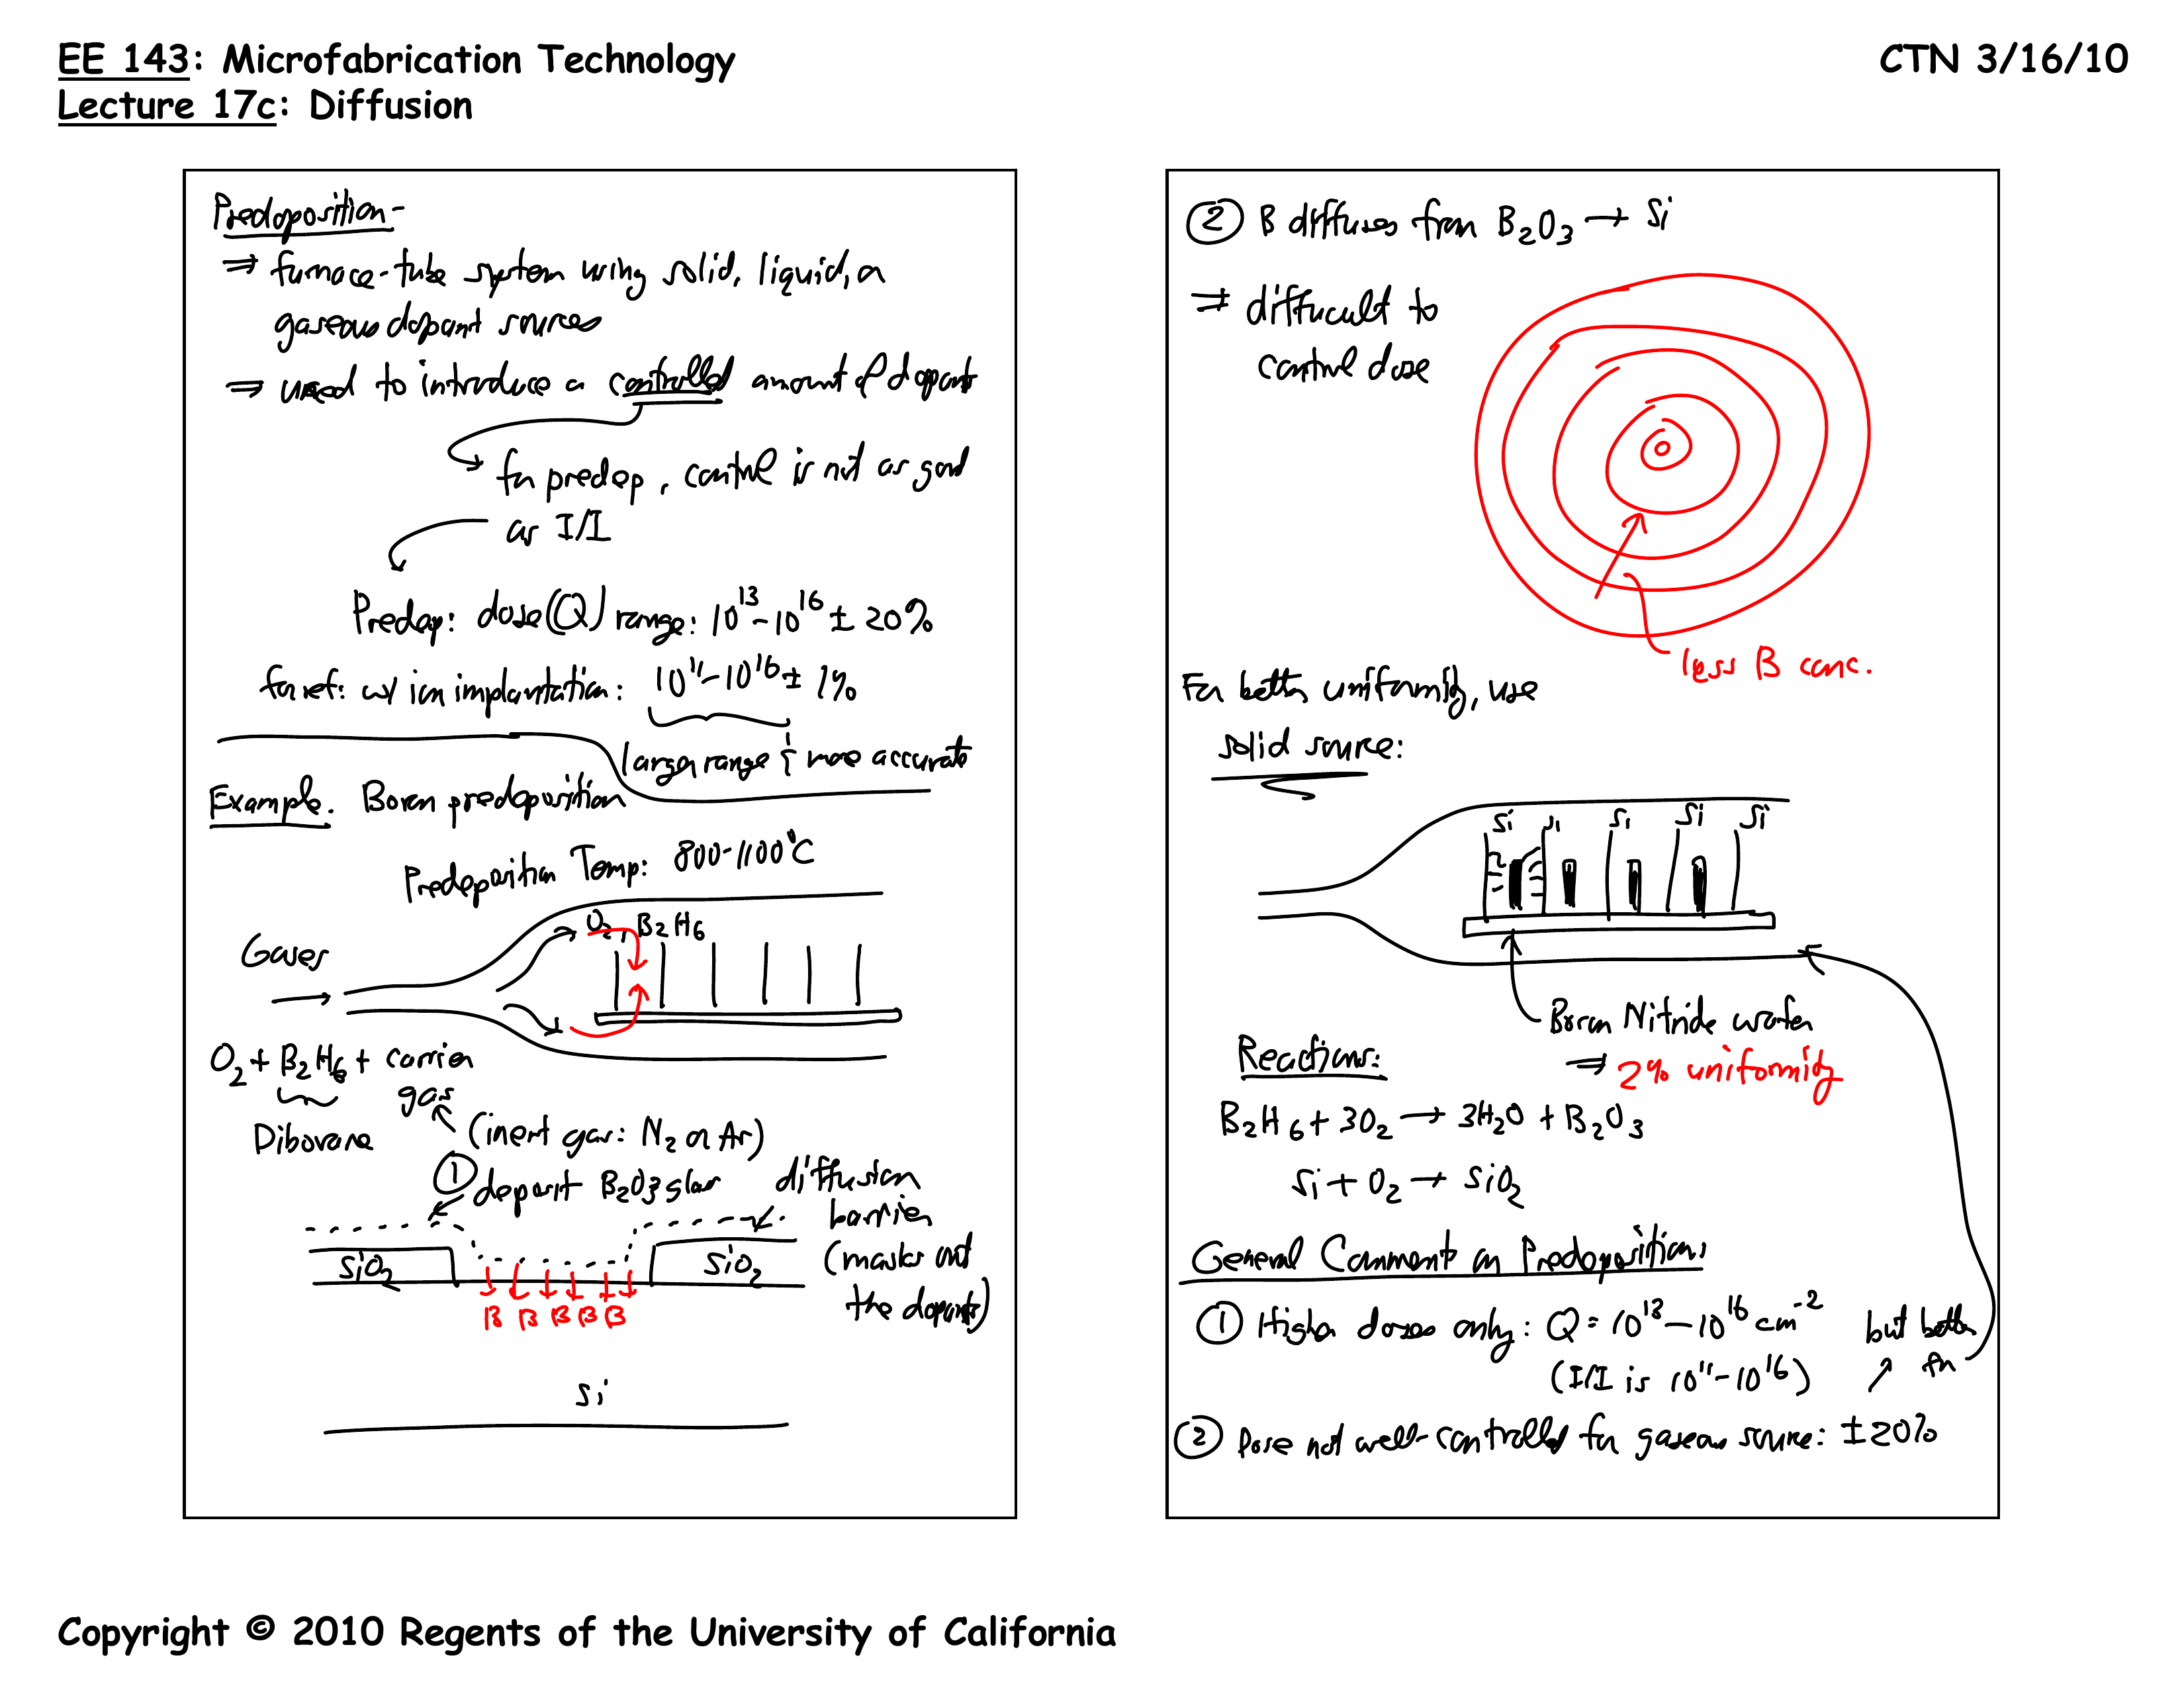 EE 143: Microfabrication Technology
CTN 3/16/10
Lecture 17c: Diffusion
Predeposition-
⇒ furnace-tube system using solid, liquid, or
gaseous dopant sources
⇒ used to introduce a controlled amount of dopant
for predep, control is not as good
as I/I
Predep: dose (Q) range: 10^13 - 10^16 ± 20%
for ref: w/ ion implantation: 10^11 - 10^16 ± 1%
larger range & more accurate
Example. Boron predeposition
Predeposition Temp: 800-1100°C
O2, B2H6
Gases
O2 + B2H6 + carrier
gas
Diborane
(inert gas: N2 or Ar)
① deposit B2O3 glass
diffusion
barrier
(masks out
the dopants)
SiO2
SiO2
B B B B B
Si
② B diffuses from B2O3 → Si
⇒ difficult to
control dose
less B conc.
For better uniformity, use
solid source:
Si Si Si Si Si
Boron Nitride wafer
⇒ 2% uniformity
Reactions:
B2H6 + 3O2 → 3H2O + B2O3
Si + O2 → SiO2
General Comment on Predeposition:
① Higher doses only: Q = 10^13 - 10^16 cm^-2
(I/I is 10^11 - 10^16)
but better
for
② Dose not well-controlled for gaseous source: ± 20%
Copyright © 2010 Regents of the University of California